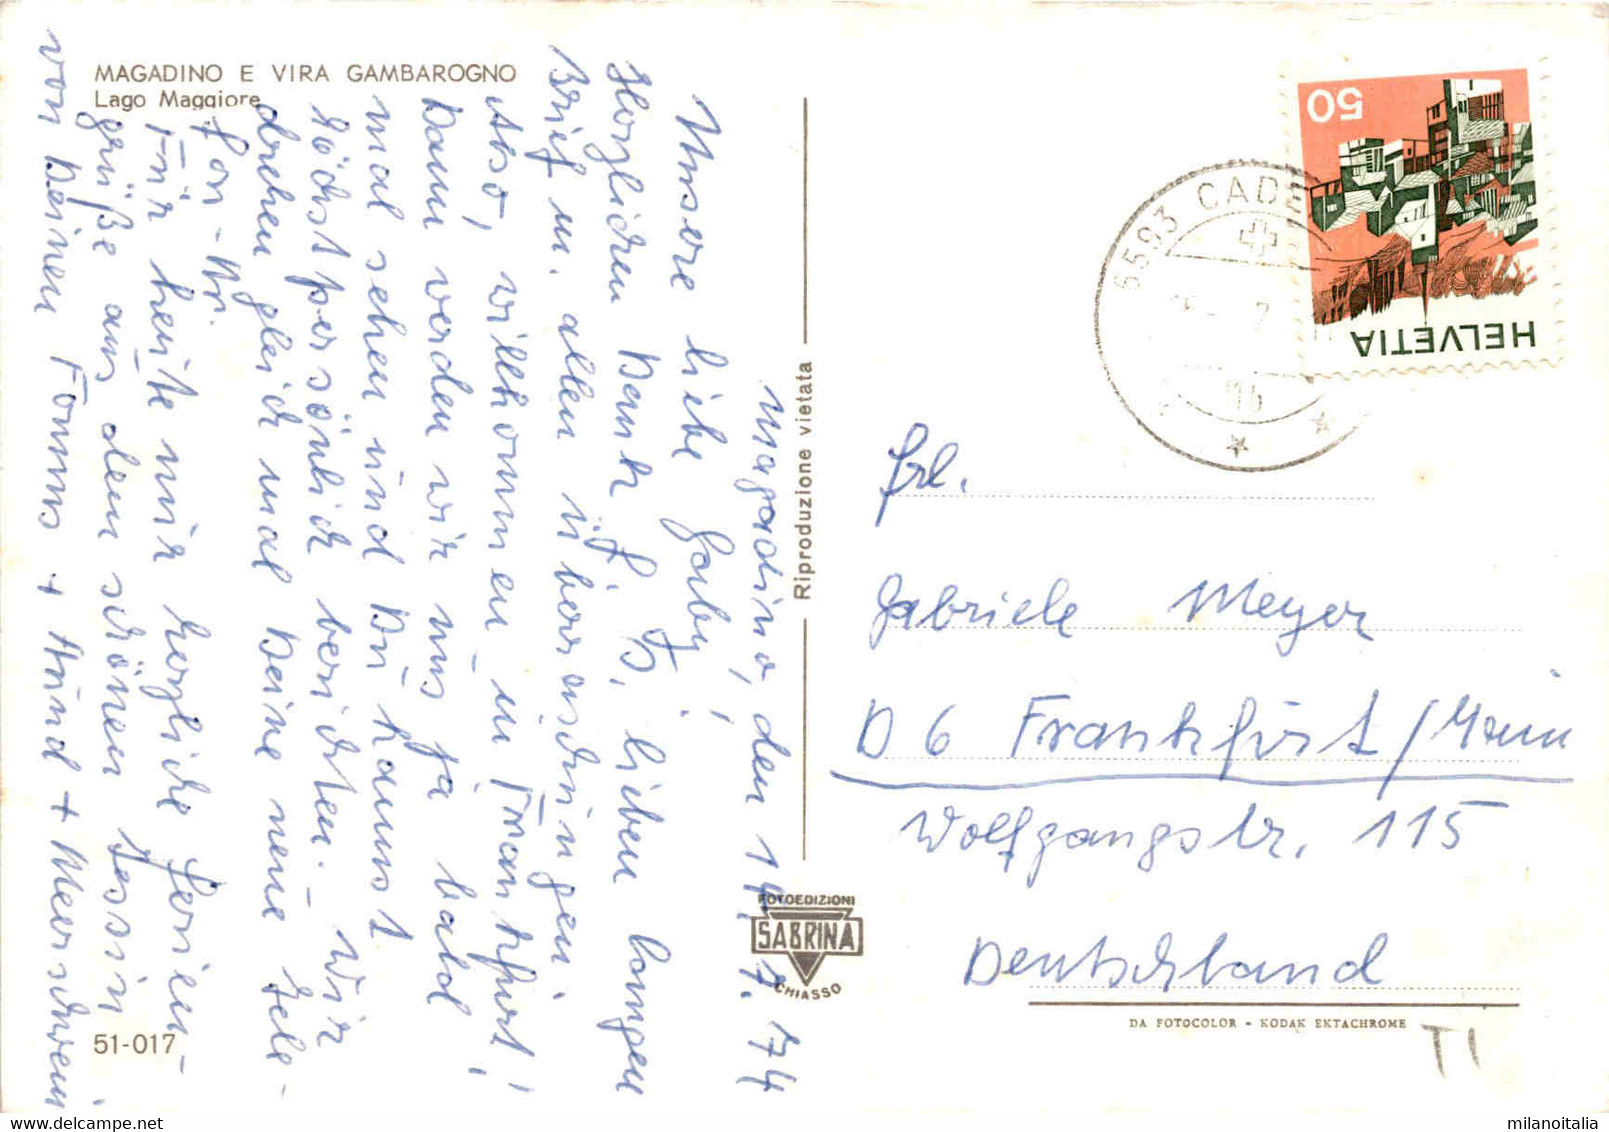 MAGADINO E VIRA GAMBAROGNO
Lago Maggiore
Magadino, den 14. 7. 74
Unsere liebe Gaby!
Herzlichen Dank f. Ds. lieben langen
Brief u. allen überbringen.
Also, willkommen in Frankfurt!
Dann werden wir uns ja bald
mal sehen und Du kannst
höchstpersönlich berichten. Wir
drehen gleich mal Deine neue Tele-
fon-Nr.
Für heute nur herzliche Ferien-
grüße aus dem schönen Tessin
von Deinen + Meerschwein
51-017
Riproduzione vietata
FOTOEDIZIONI
SABRINA
CHIASSO
HELVETIA
50
6593 CADE
Frl.
Gabriele Meyer
D 6 Frankfurt/Main
Wolfgangstr. 115
Deutschland
DA FOTOCOLOR - KODAK EKTACHROME
TI
milanoitalia
delcampe.net